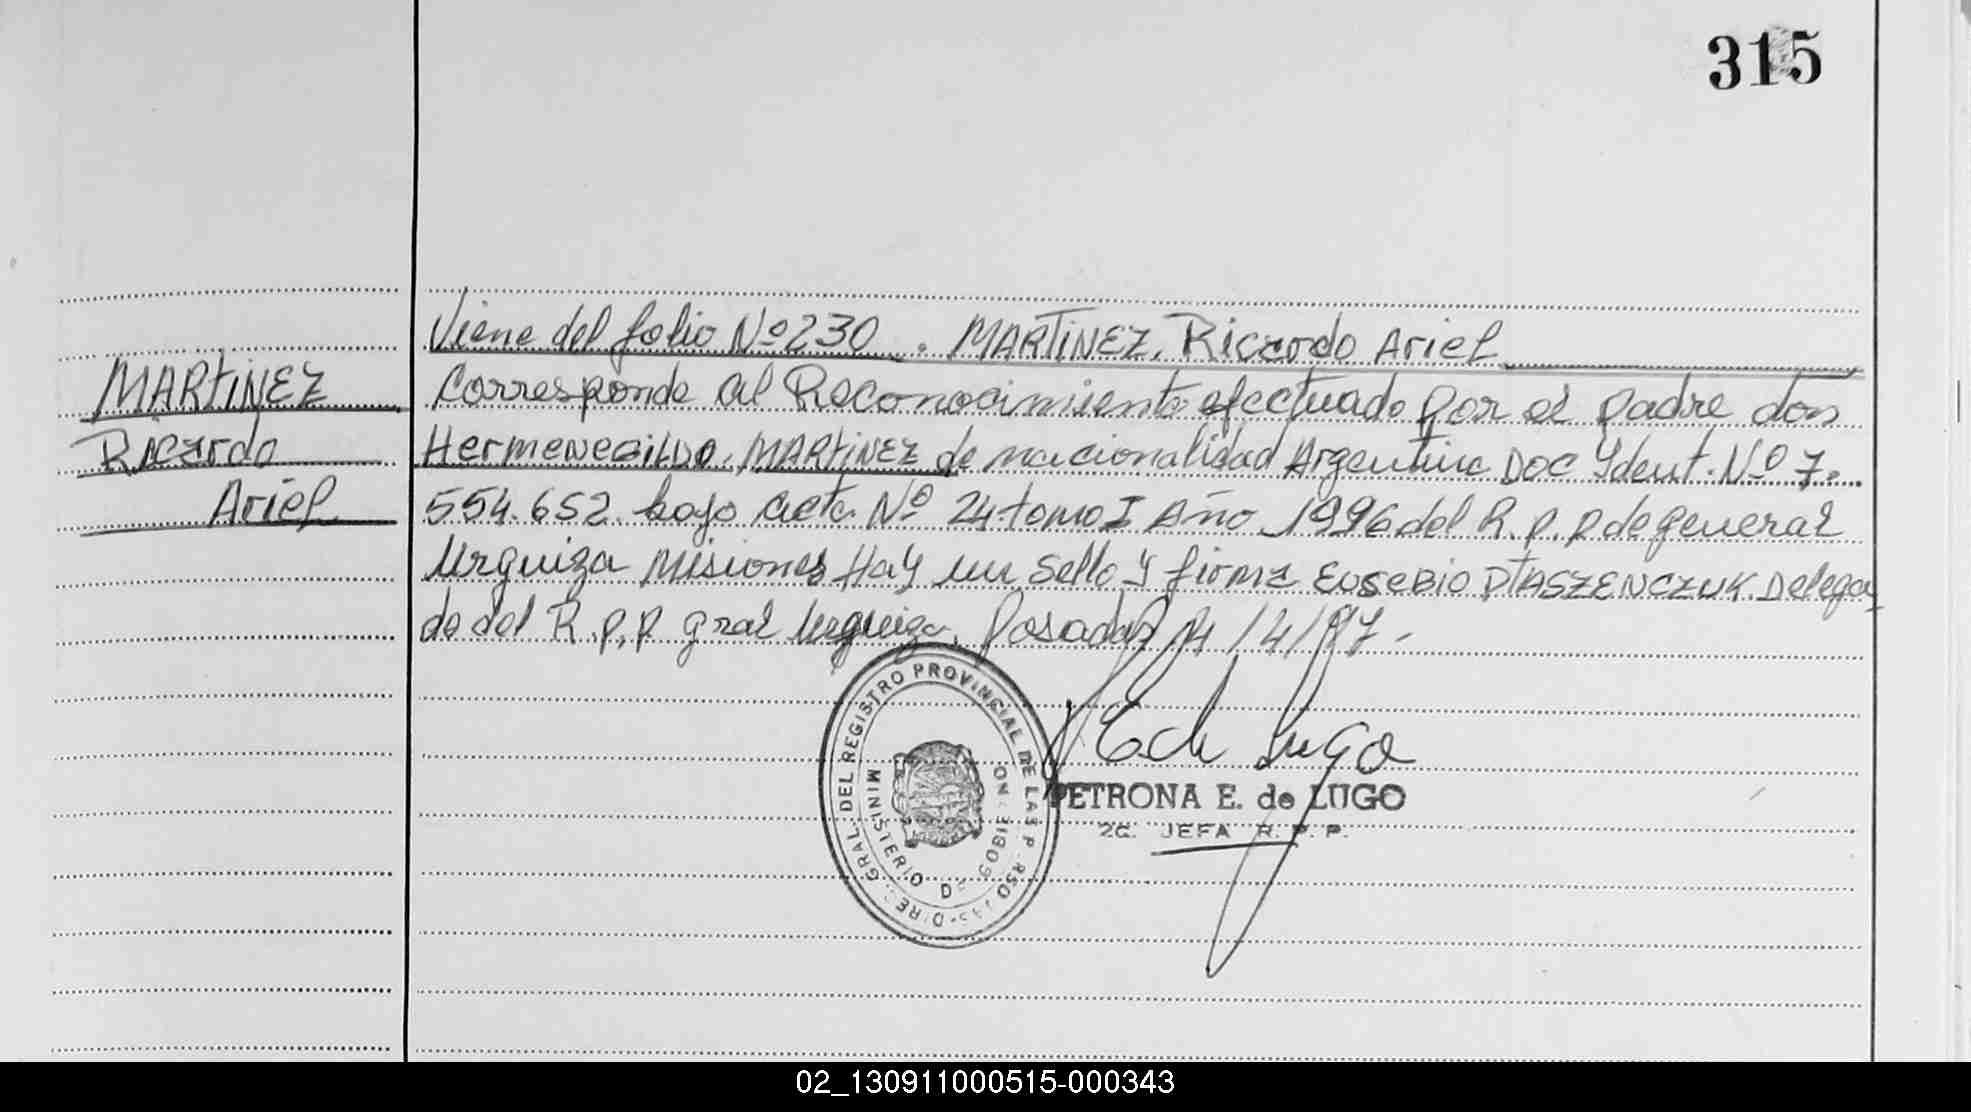 315
Viene del folio Nº 230. MARTINEZ, Ricardo Ariel
MARTINEZ
Ricardo
Ariel
Corresponde al Reconocimiento efectuado por el padre don
HermeNeGiLDO. MARTINEZ de nacionalidad Argentina Doc Ydent. Nº 7.
554.652 bajo acta Nº 24 tomo I Año 1996 del R.P.P de general
Urquiza Misiones Hay un Sello y firma EUSEBIO PTASZENCZUK. Delega
do del R.P.P gral Urquiza. Posadas 14/4/97.-
DIREC. GRAL. DEL REGISTRO PROVINCIAL DE LAS PERSONAS
MINISTERIO DE GOBIERNO
E de Lugo
PETRONA E. de LUGO
2a. JEFA R. P. P.
02_130911000515-000343